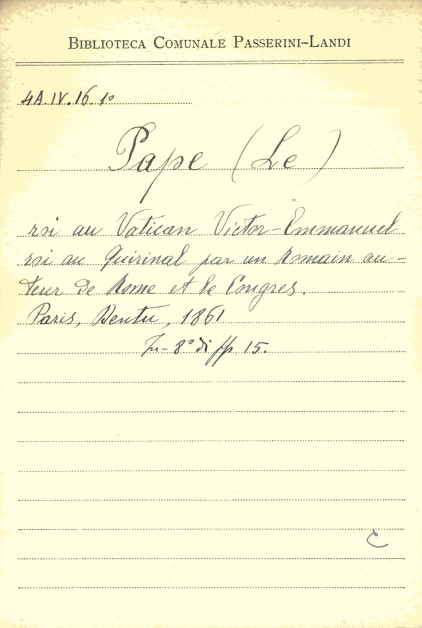 BIBLIOTECA COMUNALE PASSERINI-LANDI
4A.IV.16.1º
Pape (Le)
roi au Vatican Victor-Emmanuel
roi au Quirinal par un Romain au-
teur de Rome et le Congres.
Paris, Dentu, 1861
In-8º di pp 15.
C